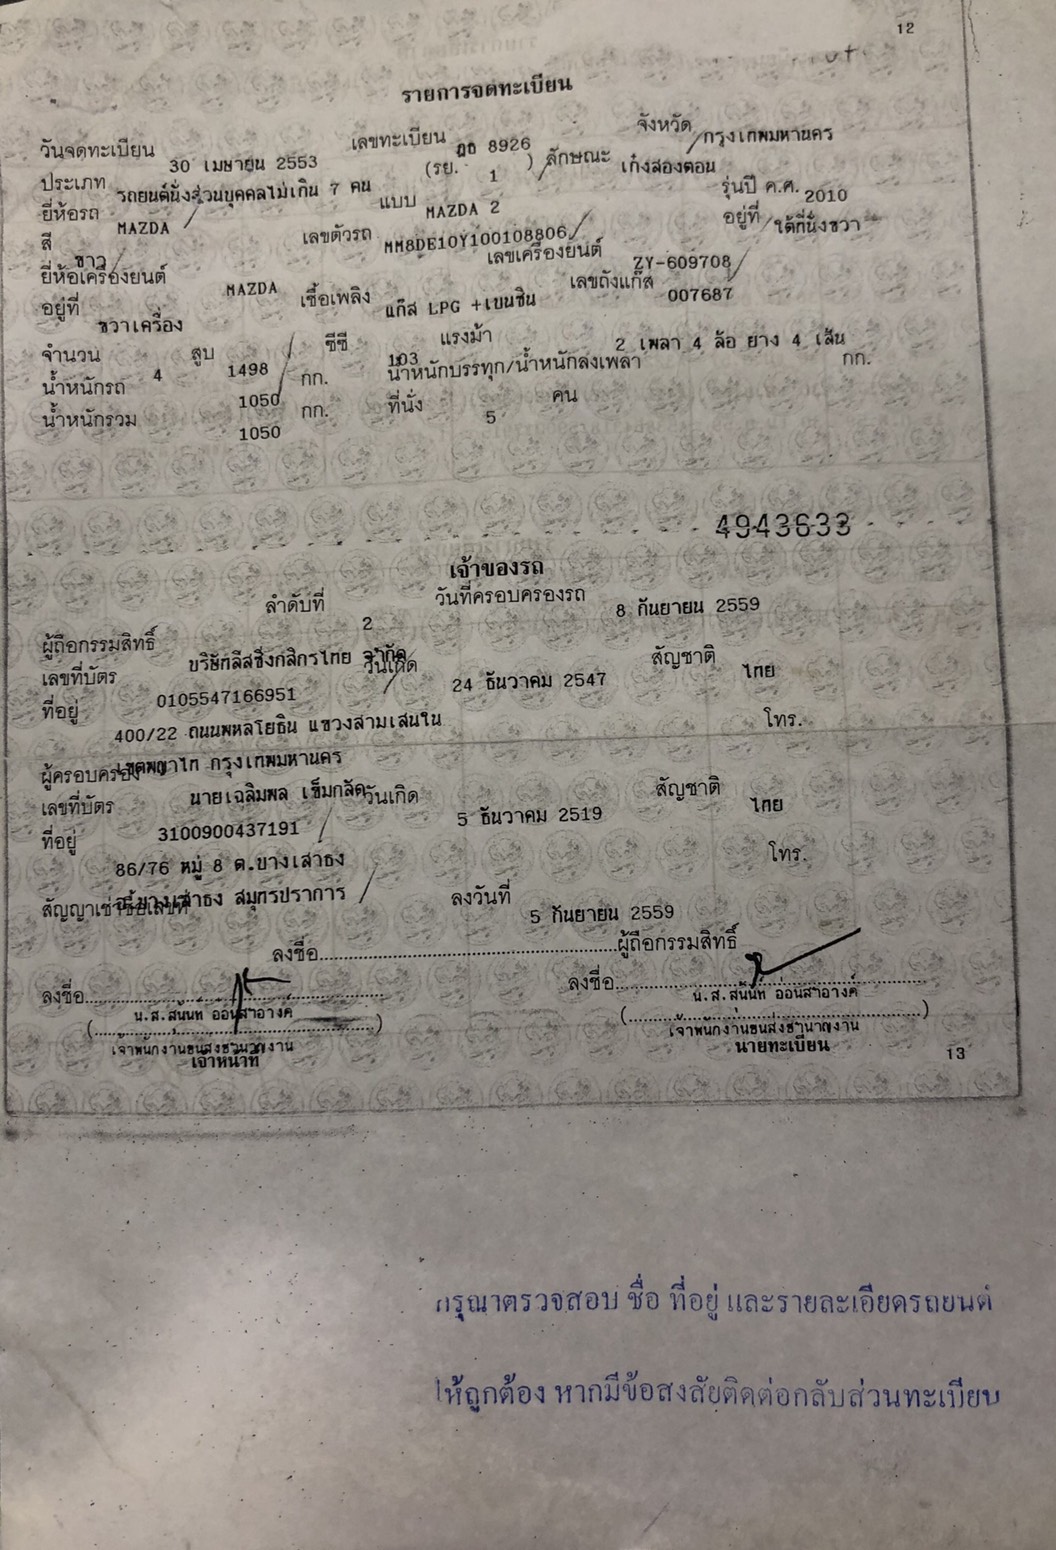 12
รายการจดทะเบียน
วันจดทะเบียน 30 เมษายน 2553 เลขทะเบียน 8926 จังหวัด กรุงเทพมหานคร
ประเภท รถยนต์นั่งส่วนบุคคลไม่เกิน 7 คน (รย. 1 ) ลักษณะ เก๋งสองตอน
ยี่ห้อรถ MAZDA แบบ MAZDA 2 รุ่นปี ค.ศ. 2010
สี ขาว เลขตัวรถ MM8DE10Y100108806 อยู่ที่ ใต้ที่นั่งขวา
ยี่ห้อเครื่องยนต์ MAZDA เลขเครื่องยนต์ ZY-609708
อยู่ที่ ขวาเครื่อง เชื้อเพลิง แก๊ส LPG +เบนซิน เลขถังแก๊ส 007687
จำนวน 4 สูบ 1498 ซีซี 103 แรงม้า 2 เพลา 4 ล้อ ยาง 4 เส้น
น้ำหนักรถ 1050 กก. น้ำหนักบรรทุก/น้ำหนักลงเพลา กก.
น้ำหนักรวม 1050 กก. ที่นั่ง 5 คน
4943633
เจ้าของรถ
ลำดับที่ 2 วันที่ครอบครองรถ 8 กันยายน 2559
ผู้ถือกรรมสิทธิ์ บริษัทลีสซิ่งกสิกรไทย จำกัด
เลขที่บัตร 0105547166951 วันเกิด 24 ธันวาคม 2547 สัญชาติ ไทย
ที่อยู่ 400/22 ถนนพหลโยธิน แขวงสามเสนใน โทร.
เขตพญาไท กรุงเทพมหานคร
ผู้ครอบครอง นายเฉลิมพล เข็มกลัด
เลขที่บัตร 3100900437191 วันเกิด 5 ธันวาคม 2519 สัญชาติ ไทย
ที่อยู่ 86/76 หมู่ 8 ต.บางเสาธง โทร.
อ.บางเสาธง สมุทรปราการ
สัญญาเช่าซื้อเลขที่ ลงวันที่ 5 กันยายน 2559
ลงชื่อ ผู้ถือกรรมสิทธิ์
ลงชื่อ ลงชื่อ
น.ส.สุนันท์ อ่อนสำอางค์ น.ส.สุนันท์ อ่อนสำอางค์
( ) ( )
เจ้าพนักงานขนส่งชำนาญงาน เจ้าพนักงานขนส่งชำนาญงาน
เจ้าหน้าที่ นายทะเบียน
13
กรุณาตรวจสอบ ชื่อ ที่อยู่ และรายละเอียดรถยนต์
ให้ถูกต้อง หากมีข้อสงสัยติดต่อกลับส่วนทะเบียน